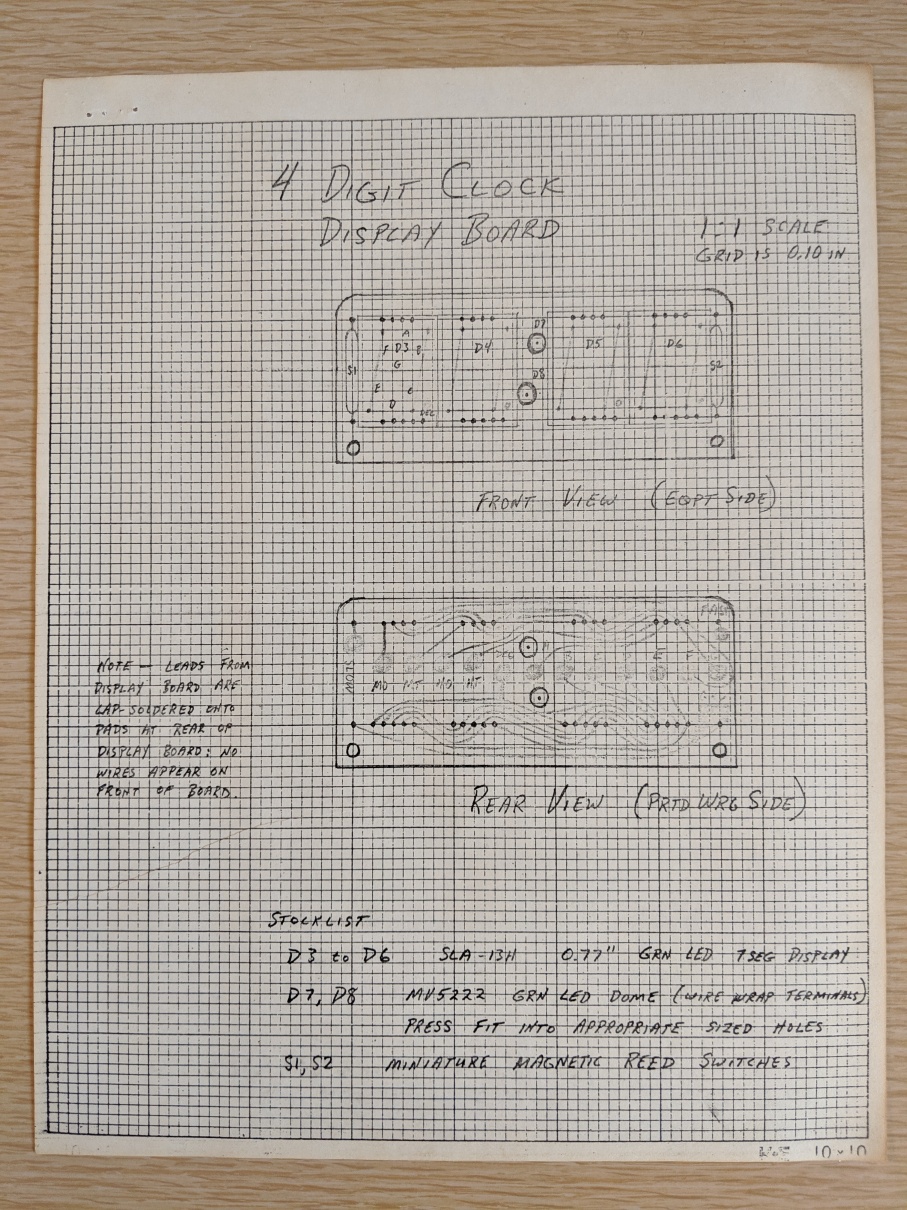 4 DIGIT CLOCK
DISPLAY BOARD
1:1 SCALE
GRID IS 0.10 IN
D7
A
F D3 B
D4
D5
D6
G
S1
S2
D8
E C
D
DEC
FRONT VIEW (EQPT SIDE)
FAST
SLOW
MO
HT
NOTE — LEADS FROM
DISPLAY BOARD ARE
LAP-SOLDERED ONTO
PADS AT REAR OF
DISPLAY BOARD: NO
WIRES APPEAR ON
FRONT OF BOARD.
REAR VIEW (PRTD WRG SIDE)
STOCKLIST
D3 to D6 SLA-13H 0.77" GRN LED 7SEG DISPLAY
D7, D8 MV5222 GRN LED DOME (WIRE WRAP TERMINALS)
PRESS FIT INTO APPROPRIATE SIZED HOLES
S1, S2 MINIATURE MAGNETIC REED SWITCHES
10×10